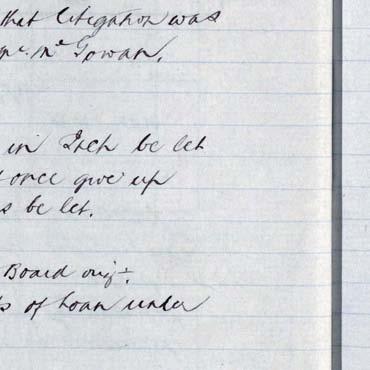 that litigation was
Mr. McGowan.
in Inch be let
once give up
be let.
Board
of Loan under